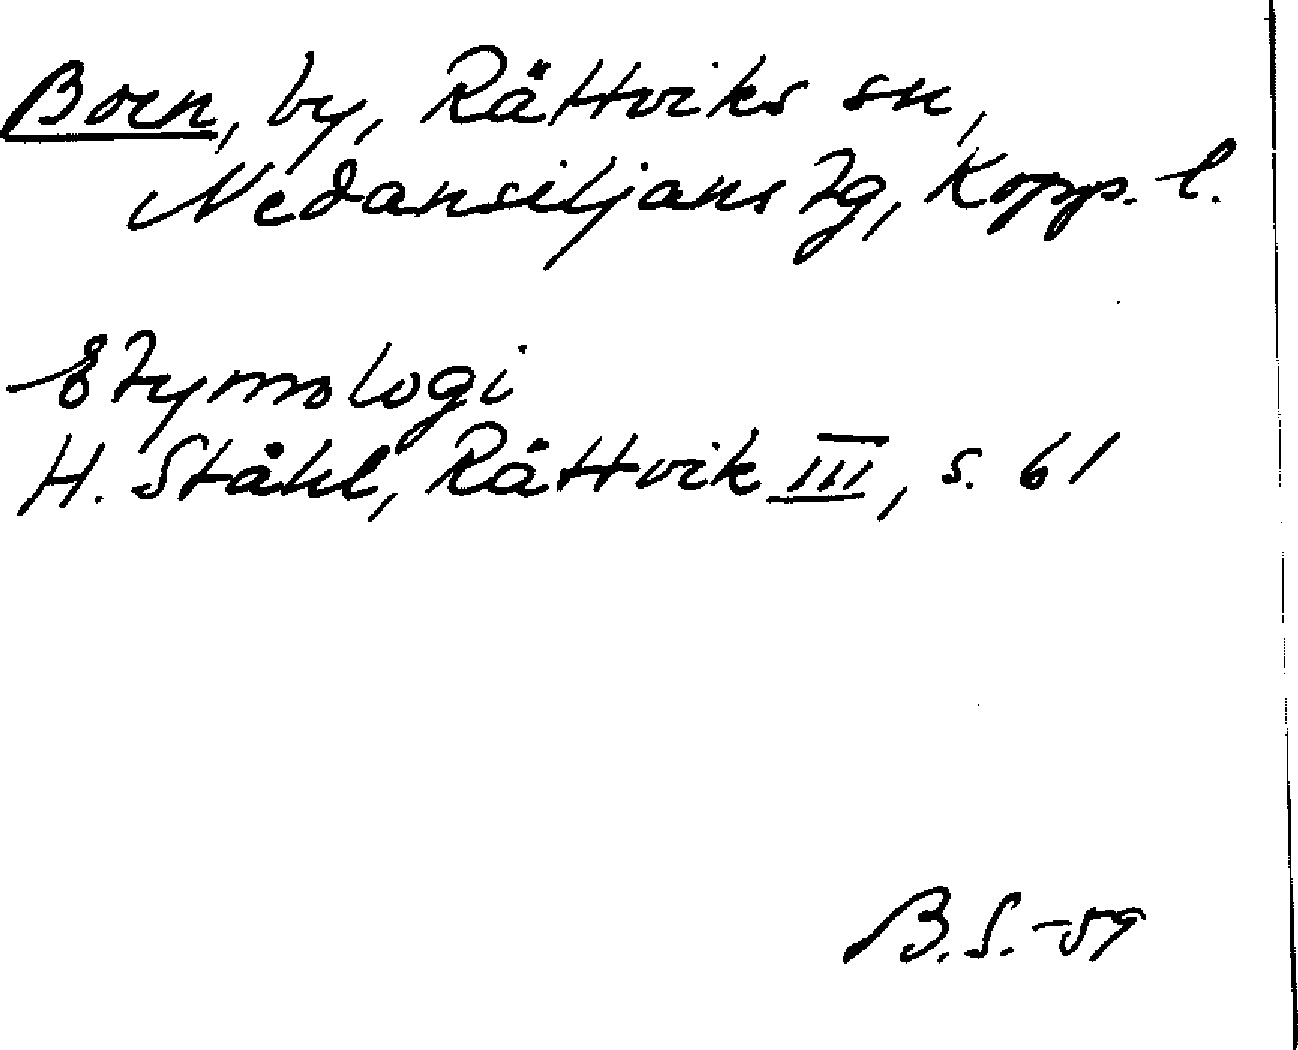 Boen, by, Rättviks sn,
Nedansiljans tg, Kopp. l.
Etymologi
H. Ståhl, Rättvik III, s. 61
B.S. -59